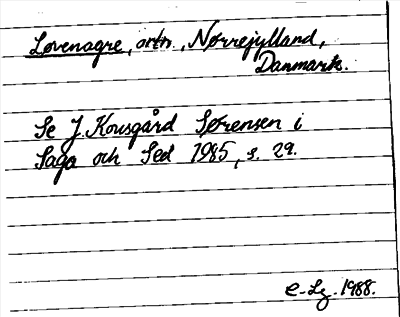 Løvenagre, ortn., Nørrejylland,
Danmark.
Se J. Kousgård Sørensen i
Saga och Sed 1985, s. 29.
E-Lg. 1988.